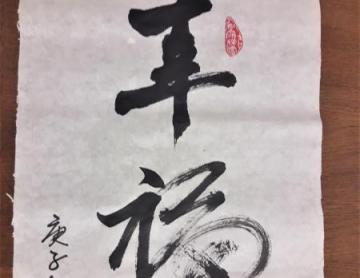 幸福
庚子